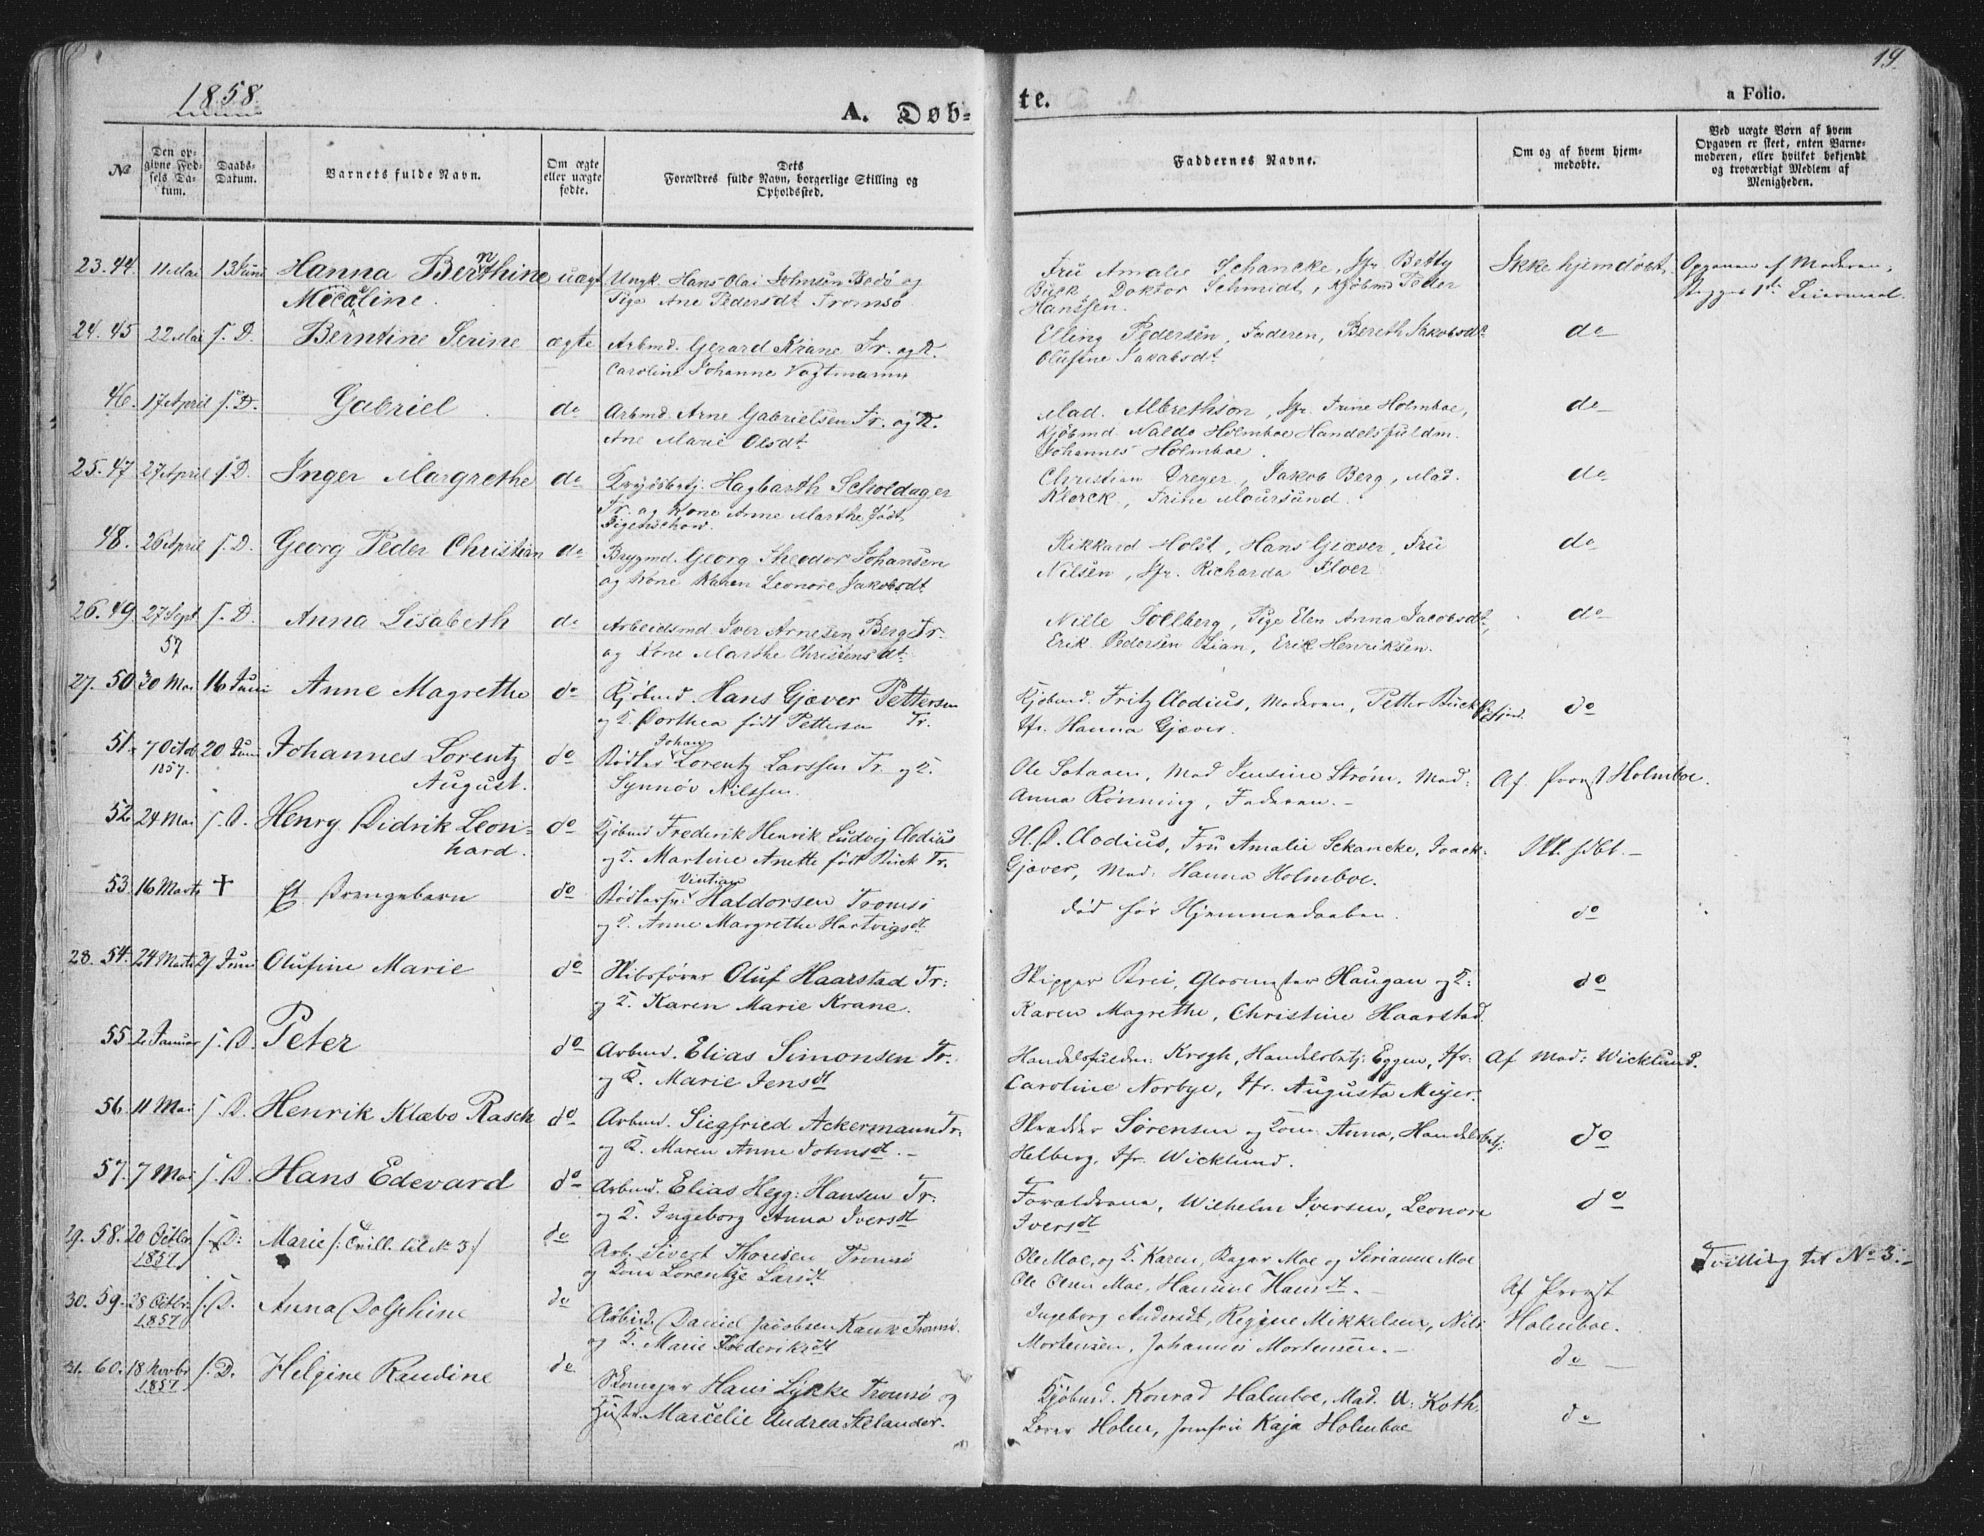 19.
1858.
A. Døb-
te.
a Folio.
No
Den op-
givne Fød-
sels Da-
tum.
Daabs-
Datum.
Barnets fulde Navn.
Om ægte
eller uægte
fødte.
Dets
Forældres fulde Navn, borgerlige Stilling og
Opholdssted.
Faddernes Navne.
Om og af hvem hjem-
medøbte.
Ved uægte Børn af hvem
Opgaven er skeet, enten Barne-
moderen, eller hvilket bekjendt
og troværdigt Medlem af
Menigheden.
23. 44. 11 Mai 13 Juni Hanna Bernthine uægt Ungk. Hans Olai Johnsen Bodø og
Pige Ane Pedersdt Tromsø
Fru Amalie Schancke, Jfr. Betty
Buck, Doktor Schmidt, Kjøbmd Peder
Hanssen.
Ikke hjemdøbt. Opgaven af Moderen,
24. 45 22 Mai s. D. Berntine Serine ægte Arbmd. Gerard Krane Tr. og K.
Caroline Johanne Vogtmann
Elling Pedersen, Faderen, Bereth Jakobsdt
Olufine Jakobsdt
do
46. 17 April s. D. Gabriel do Arbmd. Arne Gabrielsen Tr. og K.
Ane Marie Olsdt
Mad. Albrethson, Jfr. Trine Holmboe,
Kjøbmd. Naldo Holmboe Handelsfuldm.
Johannes Holmboe.
do
25. 47 27 April s. D. Inger Margrethe do Hagbarth Scholdager
Tr. og Kone Anne Marthe født
Figenschow.
Christian Dreyer, Jakob Berg, Mad.
Klerck, Trine Moursund.
do
48. 26 April s. D. Georg Peder Christian do Brygmd. Georg Theodor Johansen
og Kone Karen Leonore Jakobsdt
Rikkard Holst, Hans Gjæver, Fru
Nilsen, Jfr. Richarda Floer
do
26. 49. 27 Sept s. D. Anna Lisabeth do Arbeidsmd Iver Arnesen Berg Tr.
57 og Kone Marthe Christensdt
Nille Follberg, Pige Elen Anna Jacobsdt,
Erik Pedersen Lian, Erik Henriksen.
do
27. 50 30 Mai 16 Juni Anne Magrethe do Kjøbmd. Hans Gjæver Pettersen
og K. Dorthea født Pettersen Tr.
Kjøbmd. Fritz Clodius, Moderen, Petter Buck
Jfr. Hanna Gjæver.
do
51. 7 Octob 20 Juni Johannes Lorentz do Bødker Johan Lorentz Larssen Tr. og K.
1857. August. Synnøv Nilssen.
Ole Mad Jensine Strøm, Mad:
Anna Rønning, Faderen.-
Af Provst Holmboe.
52 24 Mai s. D. Henry Didrik Leon- do Kjøbmd Frederik Henrik Ludvig Clodius
hard. og K. Martine Anette født Buck Tr.
H. D. Clodius, Fru Amalie Schancke, Isack
Gjæver, Mad: Hanna Holmboe.
53. 16 Marts † Et Drengebarn do Haldorsen Tromsø
og K. Anne Margrethe Hartvigsdt
død før Hjemmedaaben.
do
28. 54. 24 Marts 27 Juni Olufine Marie do Skibsfører Oluf Haarstad Tr:
og K. Karen Marie Krane.
Skipper Brei, Glasmester Haugan og K:
Karen Magrethe, Christine Haarstad.
do
55. 2 Januar s. D. Peter do Arbmd. Elias Simonsen Tr.
og K. Marie Jensdt
Handelsfuldm: Krogh, Handelsbetj: Eggen, Jfr:
Caroline Norbye, Jfr. Augusta Mejer.
Af Mad: Wicklund.
56. 11 Mai s. D. Henrik Klæbo Rasch do Arbmd. Siegfried Ackermann Tr:
og K. Maren Anne Johnsdt.-
Skrædder Sørensen og Kone Anna, Handelsbetj:
Helberg, Jfr. Wicklund.
do
57. 7 Mai s. D. Hans Edevard do Arbmd. Elias Hegg: Hansen Tr:
og K. Ingeborg Anna Iversdt
Forældrene, Wilhelm Iversen, Leonore
Iversdt
do
29. 58. 20 Octbr s. D: Marie /: Tvill. til No 3:/ do Arb. Sivert Thoresen Tromsø
1857 og Kone Lorentze Larsdt
Ole Moe, og K. Karen, Moe og Serianne Moe
Ole Olsen Moe, Hanne Hansdt.-
Tvilling til No 3.-
30. 59. 28 Octbr s. D. Anna Dolphine do Arbmd. Daniel Jacobsen Tromsø.
1857 og K. Marie Frederiksdt
Ingeborg Andersdt, Regine Mikkelsen, Nils
Mortensen, Johannes Mortensen.-
Af Provst
Holmboe.
do
31. 60. 18 Novbr s. D. Helgine Raudine do Skomager Hans Lykke Tromsø og
1857 Hustr. Marcelie Andrea Stelander.
Kjøbmd. Konrad Holmboe, Mad. U. Koth
Holm, Jomfru Kaja Holmboe
do